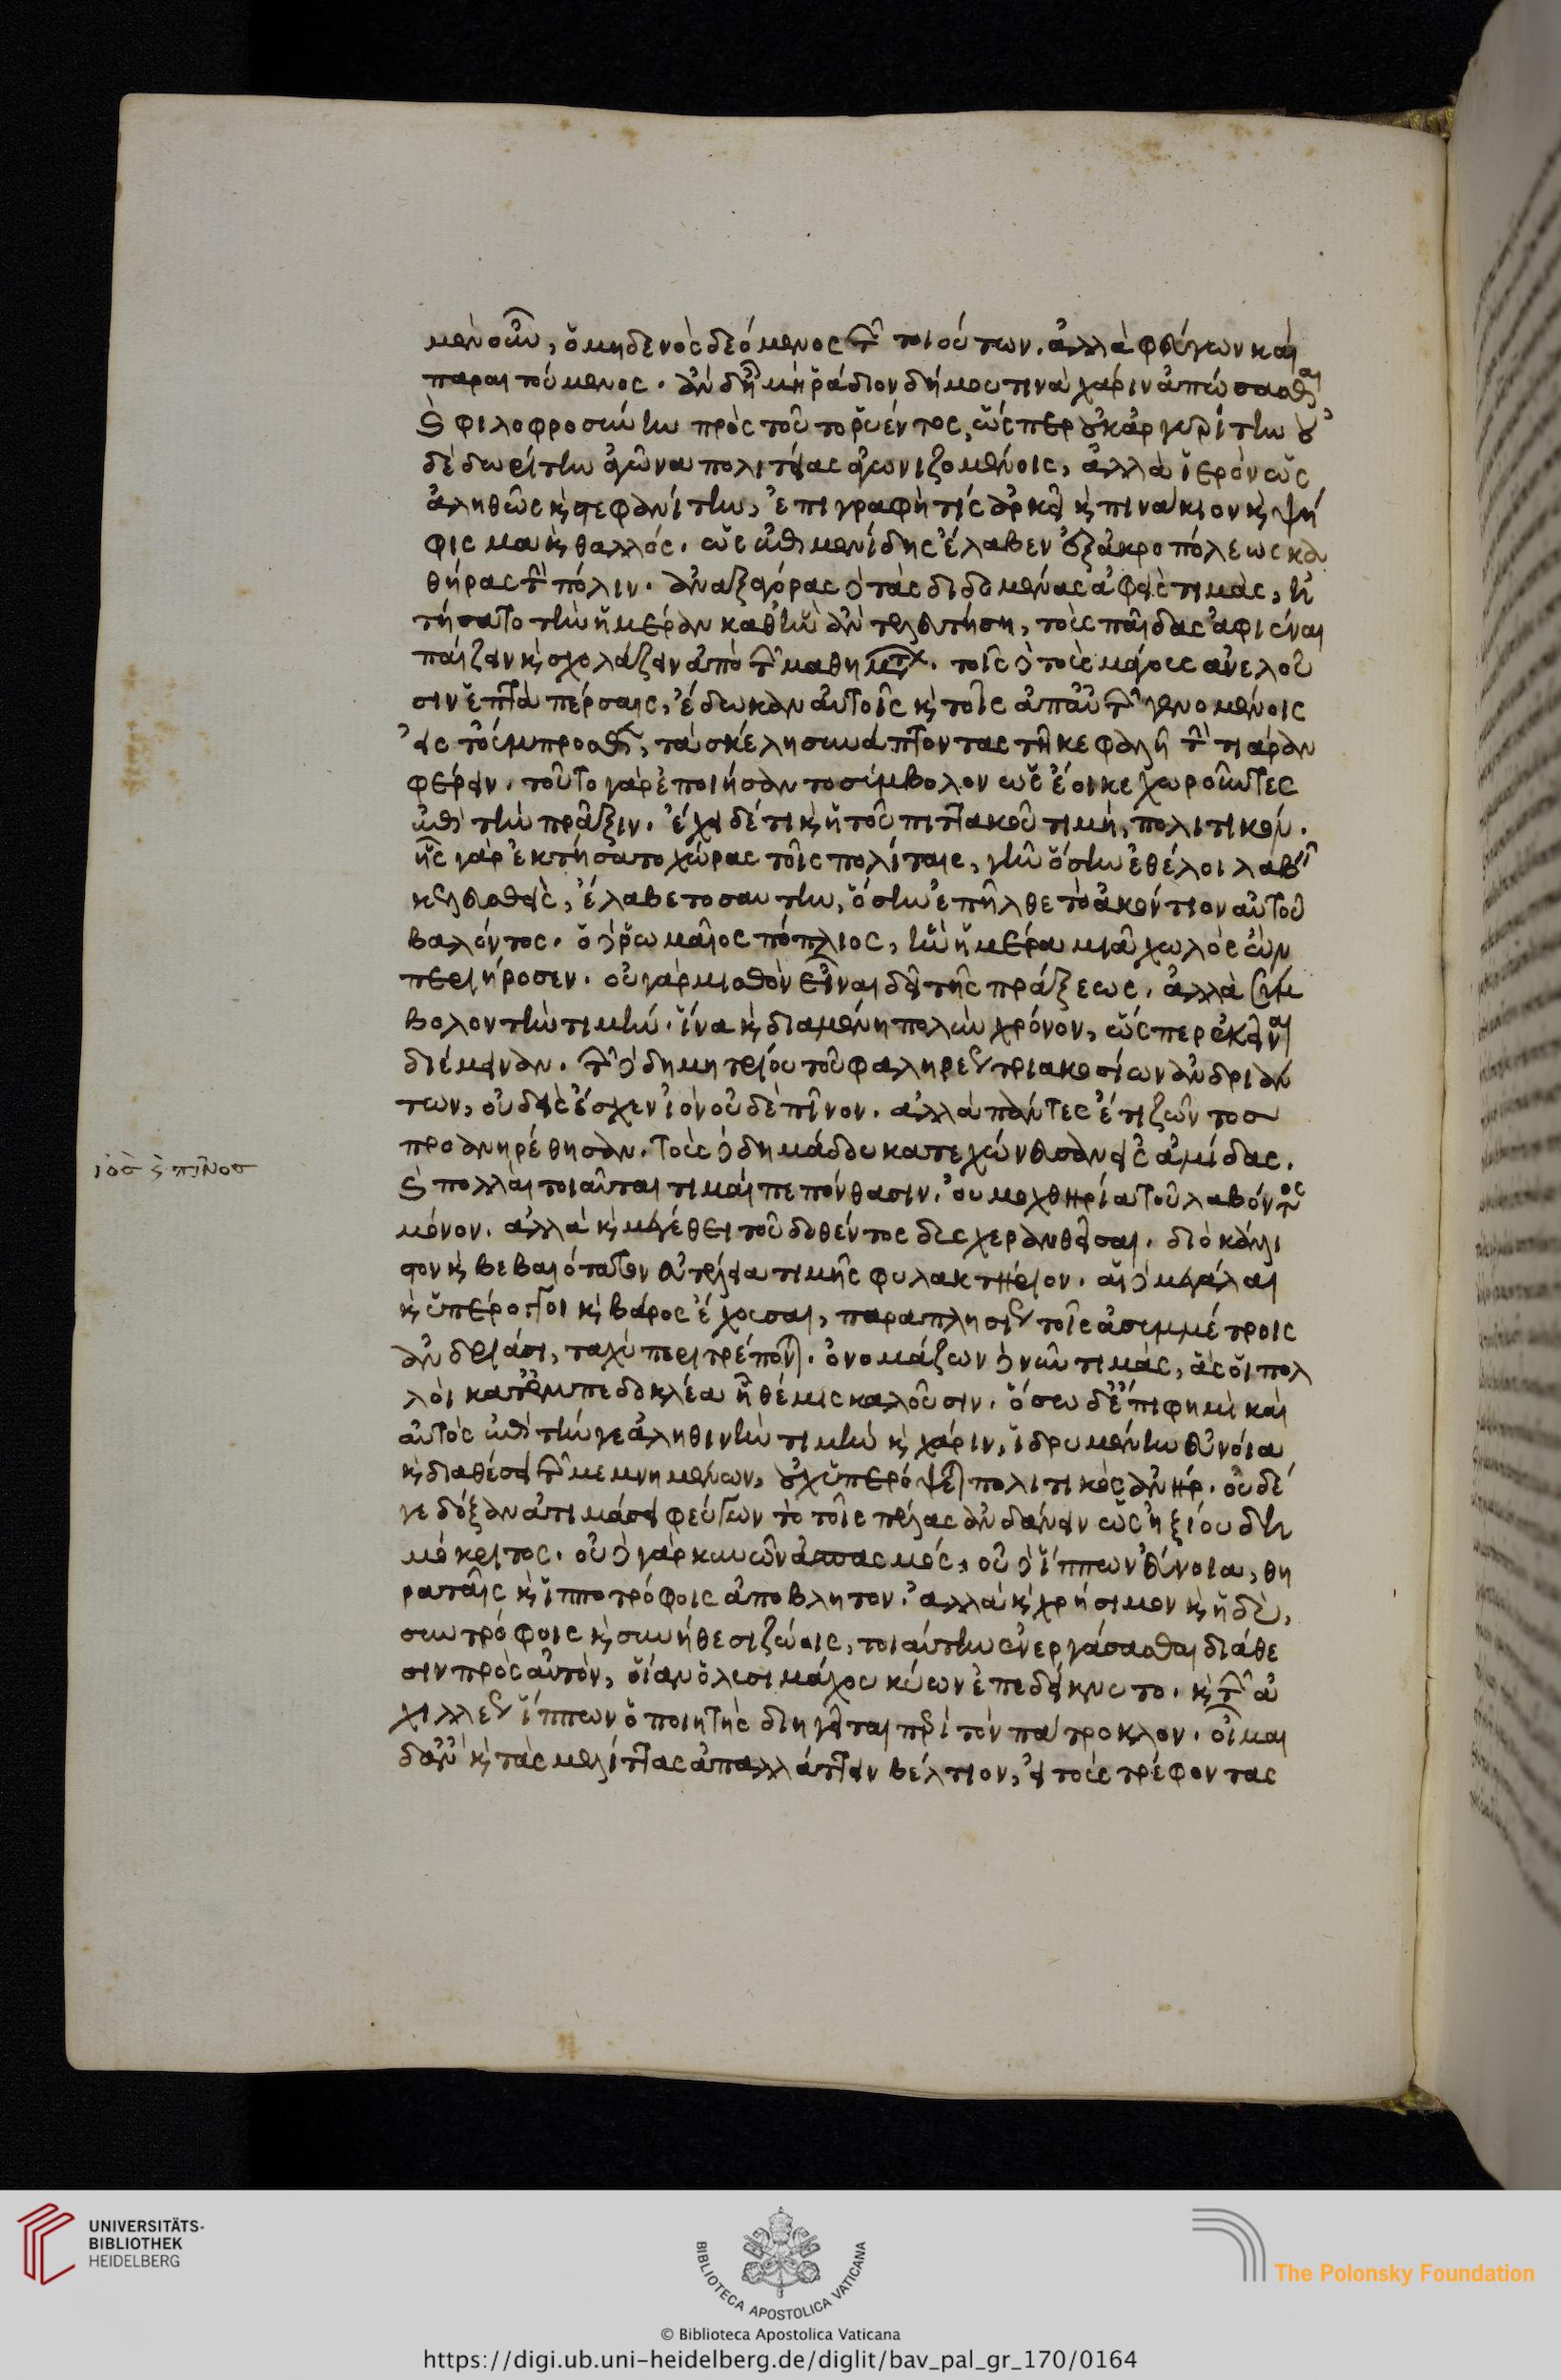 μὲν οὖν, ὁ μηδενὸς δεόμενος τῶν τοιούτων. ἀλλὰ φεύγων καὶ
παραιτούμενος. ἂν δ' ἦ μὴ ῥάδιον δήμου τινὰ χάριν ἀπώσασθαι
καὶ φιλοφροσύνην πρὸς τοῦτο ῥυέντος, ὥσπερ οὐκ ἀργυρίτην οὐ
δὲ δωρίτην ἀγῶνα πολιτείας ἀγωνιζομένοις, ἀλλὰ ἱερὸν ὡς
ἀληθῶς καὶ στεφανίτην, ἐπιγραφή τις ἀρκεῖ καὶ πινάκιον καὶ ψή
φισμα καὶ θαλλός. ὡς ἐπιμενίδης ἔλαβεν ἐξ ἀκροπόλεως κα
θήρας τὴν πόλιν. ἀναξαγόρας δὲ τὰς διδομένας ἀφεὶς τιμάς, ἠ
τήσατο τὴν ἡμέραν καθ' ἣν ἂν τελευτήση, τοὺς παῖδας ἀφιέναι
παίζειν καὶ σχολάζειν ἀπὸ τῶν μαθημάτων. τοῖς δὲ τοὺς μάγους ἀνελοῦ
σιν ἑπτὰ πέρσαις, ἔδωκαν αὐτοῖς καὶ τοῖς ἀπ' αὐτῶν γενομένοις
εἰς τοὔμπροσθεν, τὰ σκέλη συνάπτοντας τῆ κεφαλῆ τὴν τιάραν
φέρειν. τοῦτο γὰρ ἐποιήσαν το σύμβολον ὡς ἔοικε χωροῦντες
ἐπὶ τὴν πρᾶξιν. ἔχει δέ τι καὶ ἡ τοῦ πιττακοῦ τιμή, πολιτικόν.
ἧς γὰρ ἐκτήσατο χώρας τοῖς πολίταις, γῆν ὅσην ἐθέλοι λαβεῖν
κελευσθείς, ἔλαβε τοσαυτην, ὅσην ἐπῆλθε τὸ ἀκόντιον αὐτοῦ
βαλόντος. ὁ δὲ ῥωμαῖος πόπλιος, ἣν ἡμέρα μιᾶ χωλὸς ὢν
περιήροσεν. οὐ γὰρ μισθὸν εἶναι δεῖ τῆς πράξεως. ἀλλὰ σύμ
βολον τὴν τιμήν. ἵνα καὶ διαμένη πολὺν χρόνον, ὥσπερ ἐκεῖναι
διέμειναν. τῶν δὲ δημητρίου τοῦ φαληρέως τριακοσίων ἀνδριάν
των, οὐδεὶς ἔσχεν ἰὸν οὐδὲ πῖνον. ἀλλὰ πάντες ἔτι ζῶντος
προανηρέθησαν. τοὺς δὲ δημάδου κατεχώνευσαν εἰς ἀμίδας.
καὶ πολλαὶ τοιαῦται τιμαὶ πεπόνθασιν. οὐ μοχθηρία τοῦ λαβόντος
μόνον. ἀλλὰ καὶ μεγέθει τοῦ δοθέντος δυσχερανθεῖσαι. διὸ κάλλι
στον καὶ βεβαιότατον εὐτέλεια τιμῆς φυλακτήριον. αἱ δὲ μεγάλαι
καὶ ὑπέρογκοι καὶ βάρος ἔχουσαι, παραπλησίως τοῖς ἀσυμμέτροις
ἀνδριάσι, ταχὺ περιτρέπονται. ὀνομάζων δὲ νῦν τιμάς, ἃς οἱ πολ
λοὶ κατ' ἐμπεδοκλέα ἧ θέμις καλοῦσιν. ὅσω δ' ἐπίφημι καὶ
αὐτὸς ἐπὶ τήν γε ἀληθινὴν τιμὴν καὶ χάριν, ἱδρυμένην εὐνοία
καὶ διαθέσει τῶν μεμνημένων, οὐχ ὑπερόψεται πολιτικὸς ἀνήρ. οὐδέ
γε δόξαν ἀτιμάσει φεύγων τὸ τοῖς πέλας ἁνδάνειν ὡς ἠξίου δη
μόκριτος. οὐδὲ γὰρ κυνῶν ἀσπασμός, οὐδὲ ἵππων εὔνοια, θη
ραταῖς καὶ ἱπποτρόφοις ἀποβλητον. ἀλλὰ καὶ χρήσιμον καὶ ἡδὺ,
συντρόφοις καὶ συνήθεσι ζώοις, τοιαύτην ἐνεργάσασθαι διάθε
σιν πρὸς αὑτὸν, οἵαν ὁ λυσιμάχου κύων ἐπεδείκνυτο. καὶ τῶν ἀ
χιλλέως ἵππων ὁ ποιητὴς διηγεῖται περὶ τὸν πάτροκλον. οἶμαι
δ' ἂν καὶ τὰς μελίττας ἀπαλλάττειν βέλτιον, εἰ τοὺς τρέφοντας
ἰὸς καὶ πῖνος
UNIVERSITÄTS-
BIBLIOTHEK
HEIDELBERG
BIBLIOTECA APOSTOLICA VATICANA
The Polonsky Foundation
© Biblioteca Apostolica Vaticana
https://digi.ub.uni-heidelberg.de/diglit/bav_pal_gr_170/0164